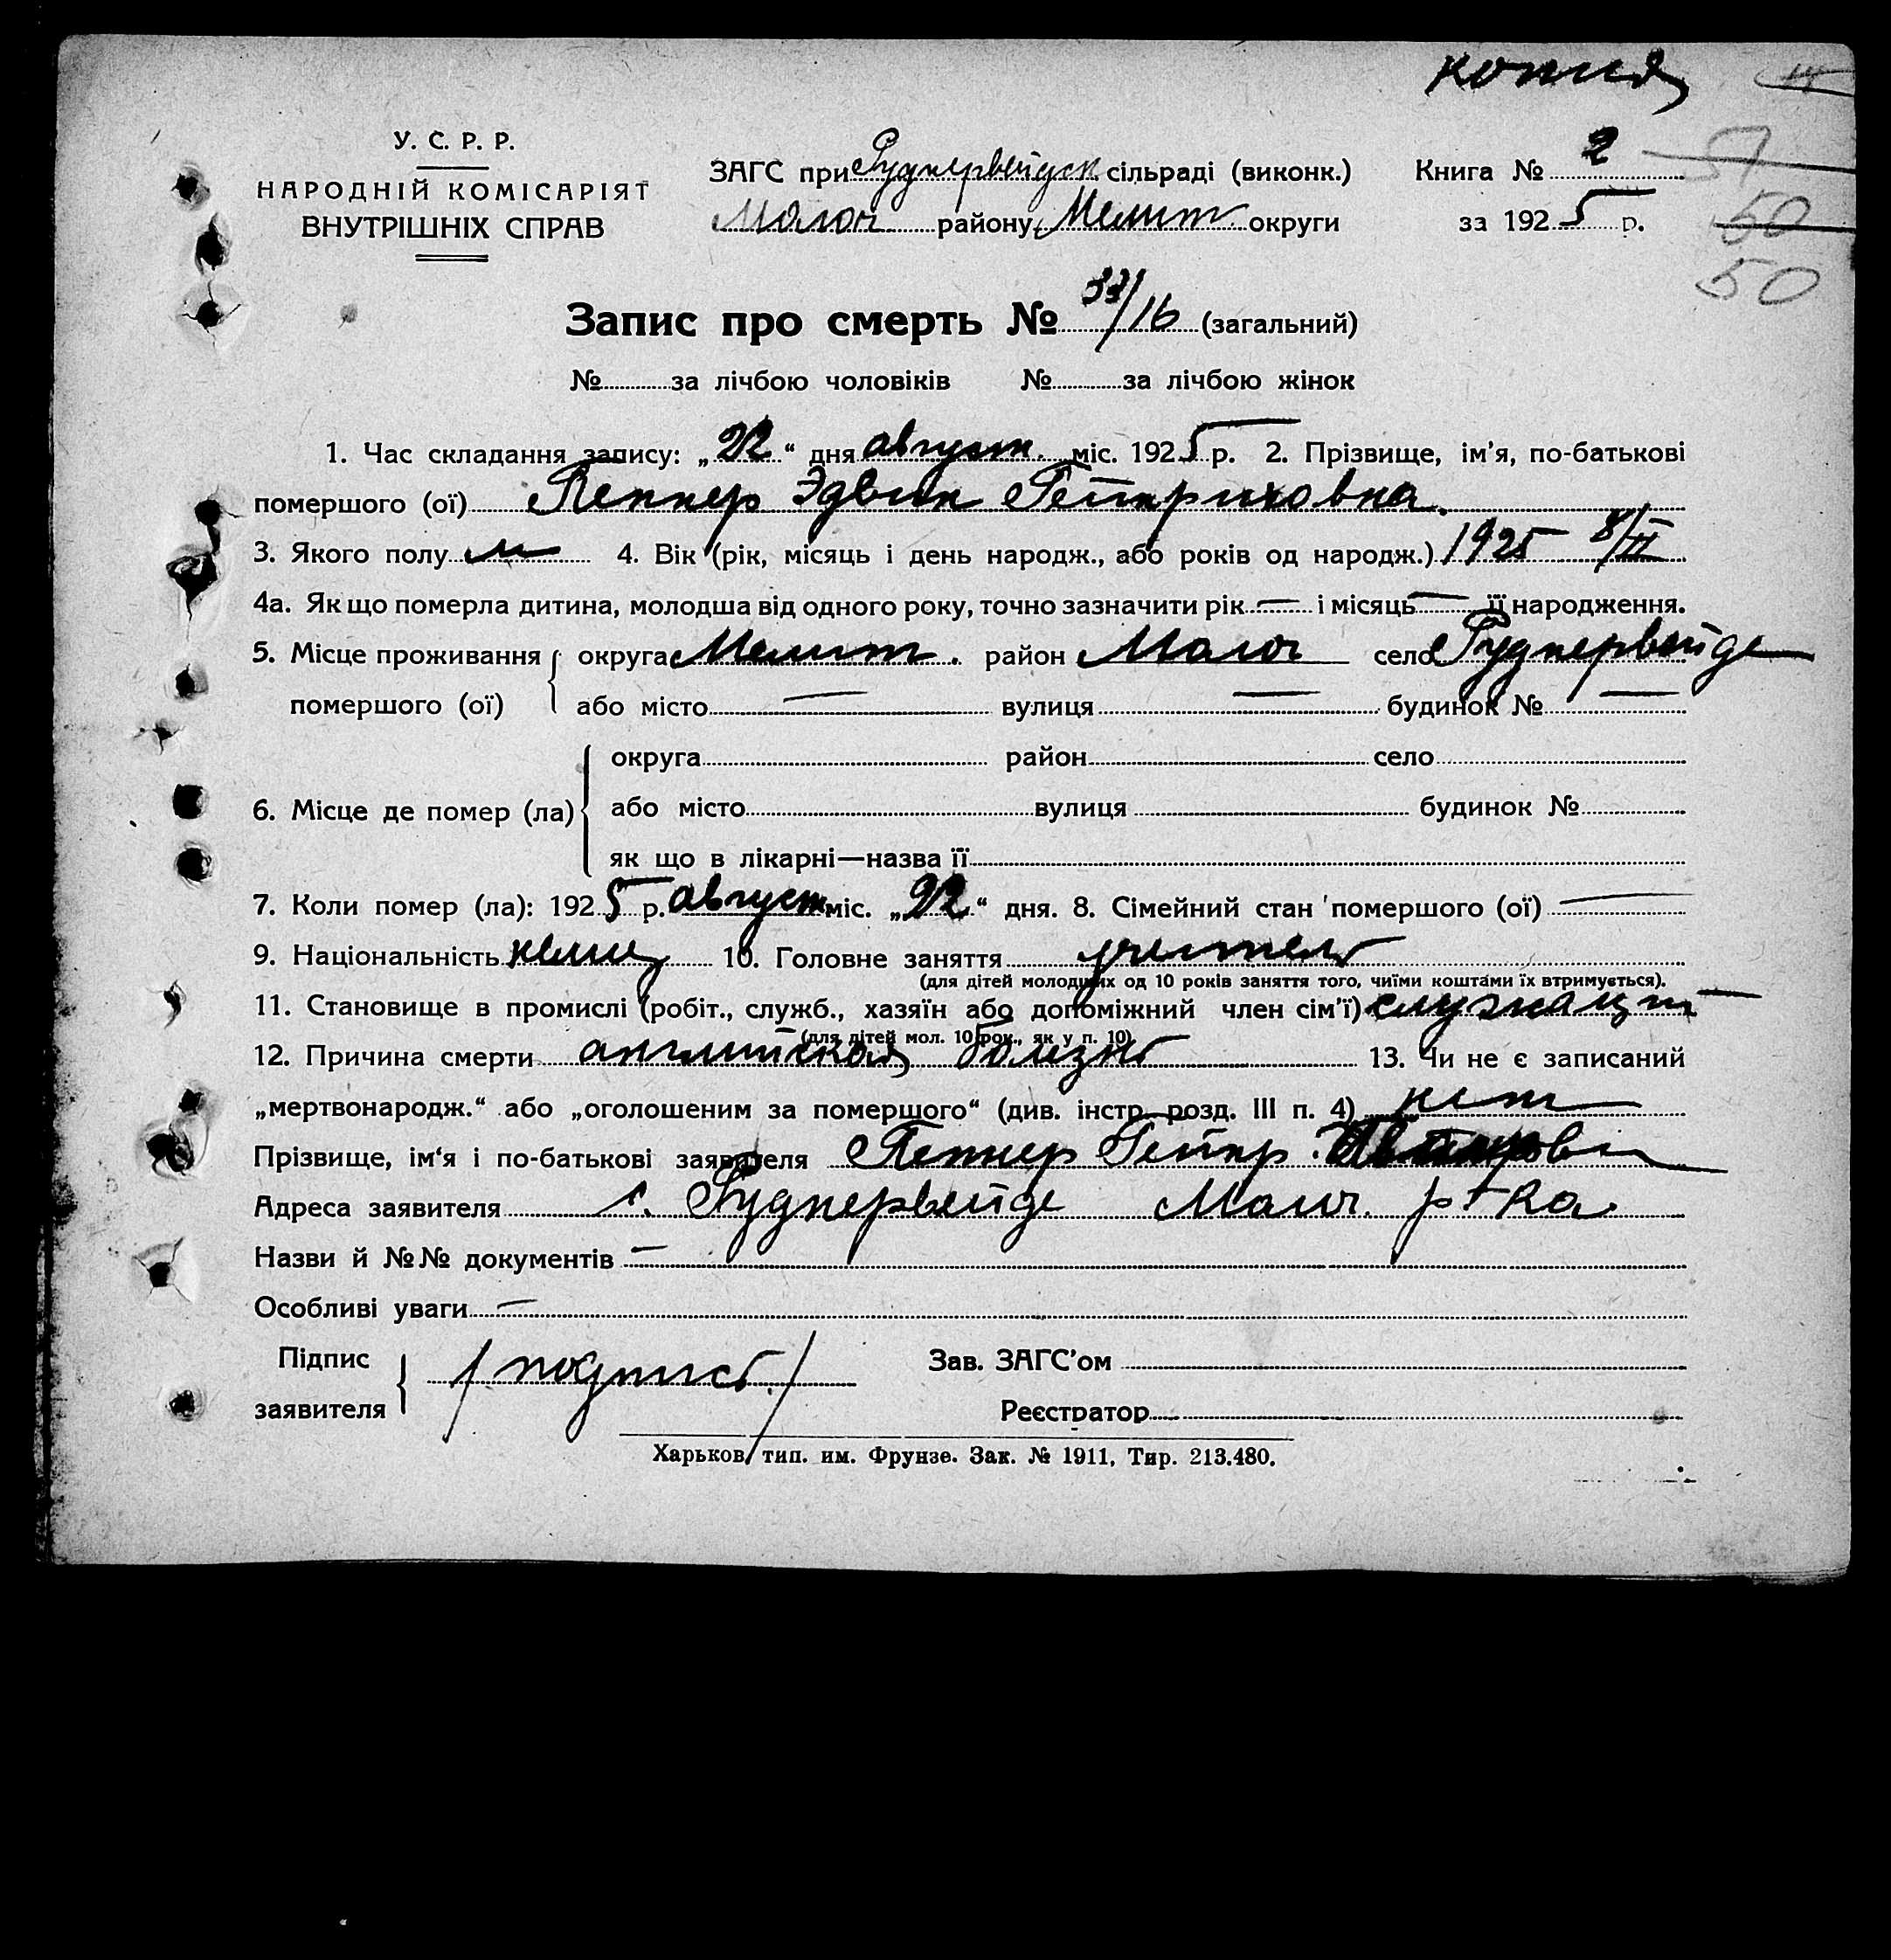 копия
У. С. Р. Р.
НАРОДНІЙ КОМІСАРІЯТ
ВНУТРІШНІХ СПРАВ
ЗАГС при Руднервейдск сільраді (виконк.)
Молоч району Мелит округи
Книга № 2
за 1925 р.
51
50
50
Запис про смерть № /16 (загальний)
№ за лічбою чоловіків № за лічбою жінок
1. Час складання запису: „22“ дня август. міс. 1925 р. 2. Прізвище, ім'я, по-батькові
помершого (ої) Пеннер Эдвин Гейнриховна.
3. Якого полу м 4. Вік (рік, місяць і день народж., або років од народж.) 1925 8/II
4а. Як що померла дитина, молодша від одного року, точно зазначити рік — і місяць — її народження.
5. Місце проживання округа Мелит. район Молоч село Руднервейде
помершого (ої) або місто — вулиця — будинок № —
округа район село
6. Місце де помер (ла) або місто вулиця будинок №
як що в лікарні—назва її
7. Коли помер (ла): 1925 р. август міс. „22“ дня. 8. Сімейний стан помершого (ої) —
9. Національність немец 10. Головне заняття учитель
(для дітей молодших од 10 років заняття того, чиїми коштами їх втримується).
11. Становище в промислі (робіт., служб., хазяїн або допоміжний член сім'ї) служащий
(для дітей мол. 10 рок., як у п. 10)
12. Причина смерти английская болезнь 13. Чи не є записаний
„мертвонародж.“ або „оголошеним за помершого“ (див. інстр. розд. III п. 4) нет
Прізвище, ім'я і по-батькові заявителя Пеннер Гейнр.
Адреса заявителя с. Руднервейде Молоч. р-на
Назви й №№ документів —
Особливі уваги —
Підпис
заявителя /подпись/
Зав. ЗАГС'ом
Реєстратор
Харьков, тип. им. Фрунзе. Зак. № 1911, Тир. 213.480.